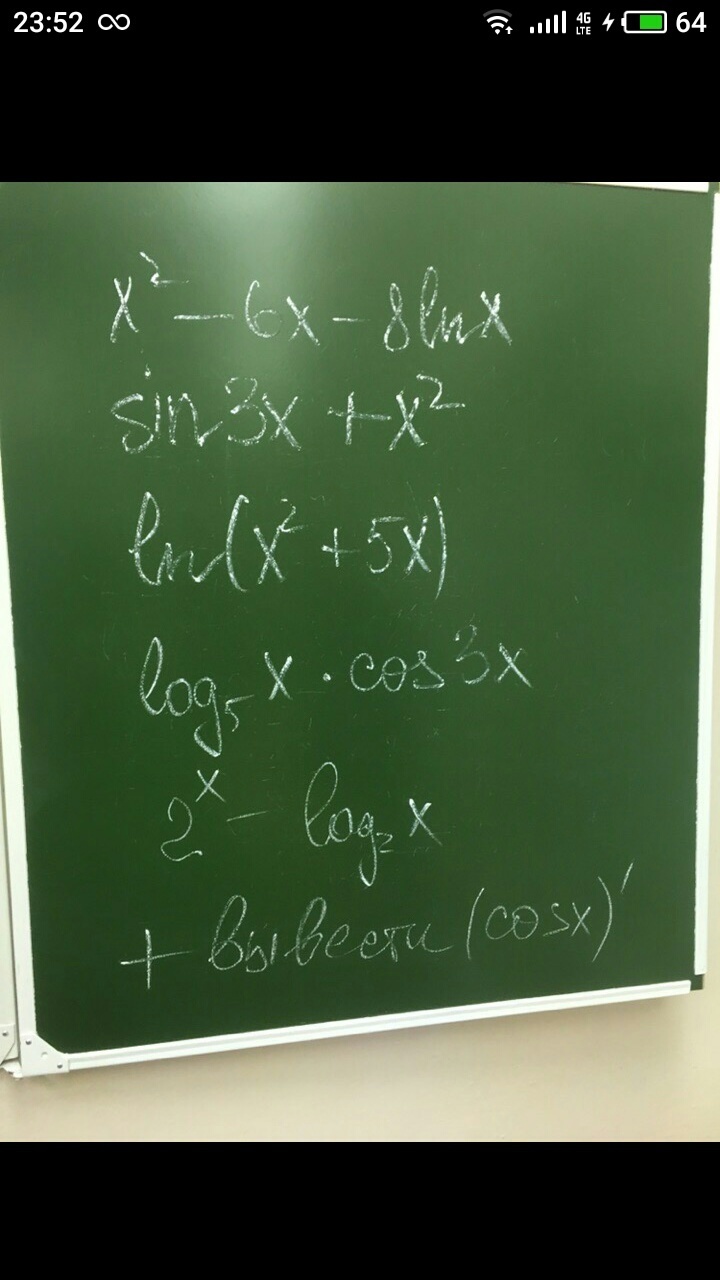 23:52 ∞ 4G LTE 64
x² – 6x – 8lnx
sin3x + x²
ln(x² + 5x)
log₅x · cos3x
2ˣ – log₂x
+ вывести (cosx)'